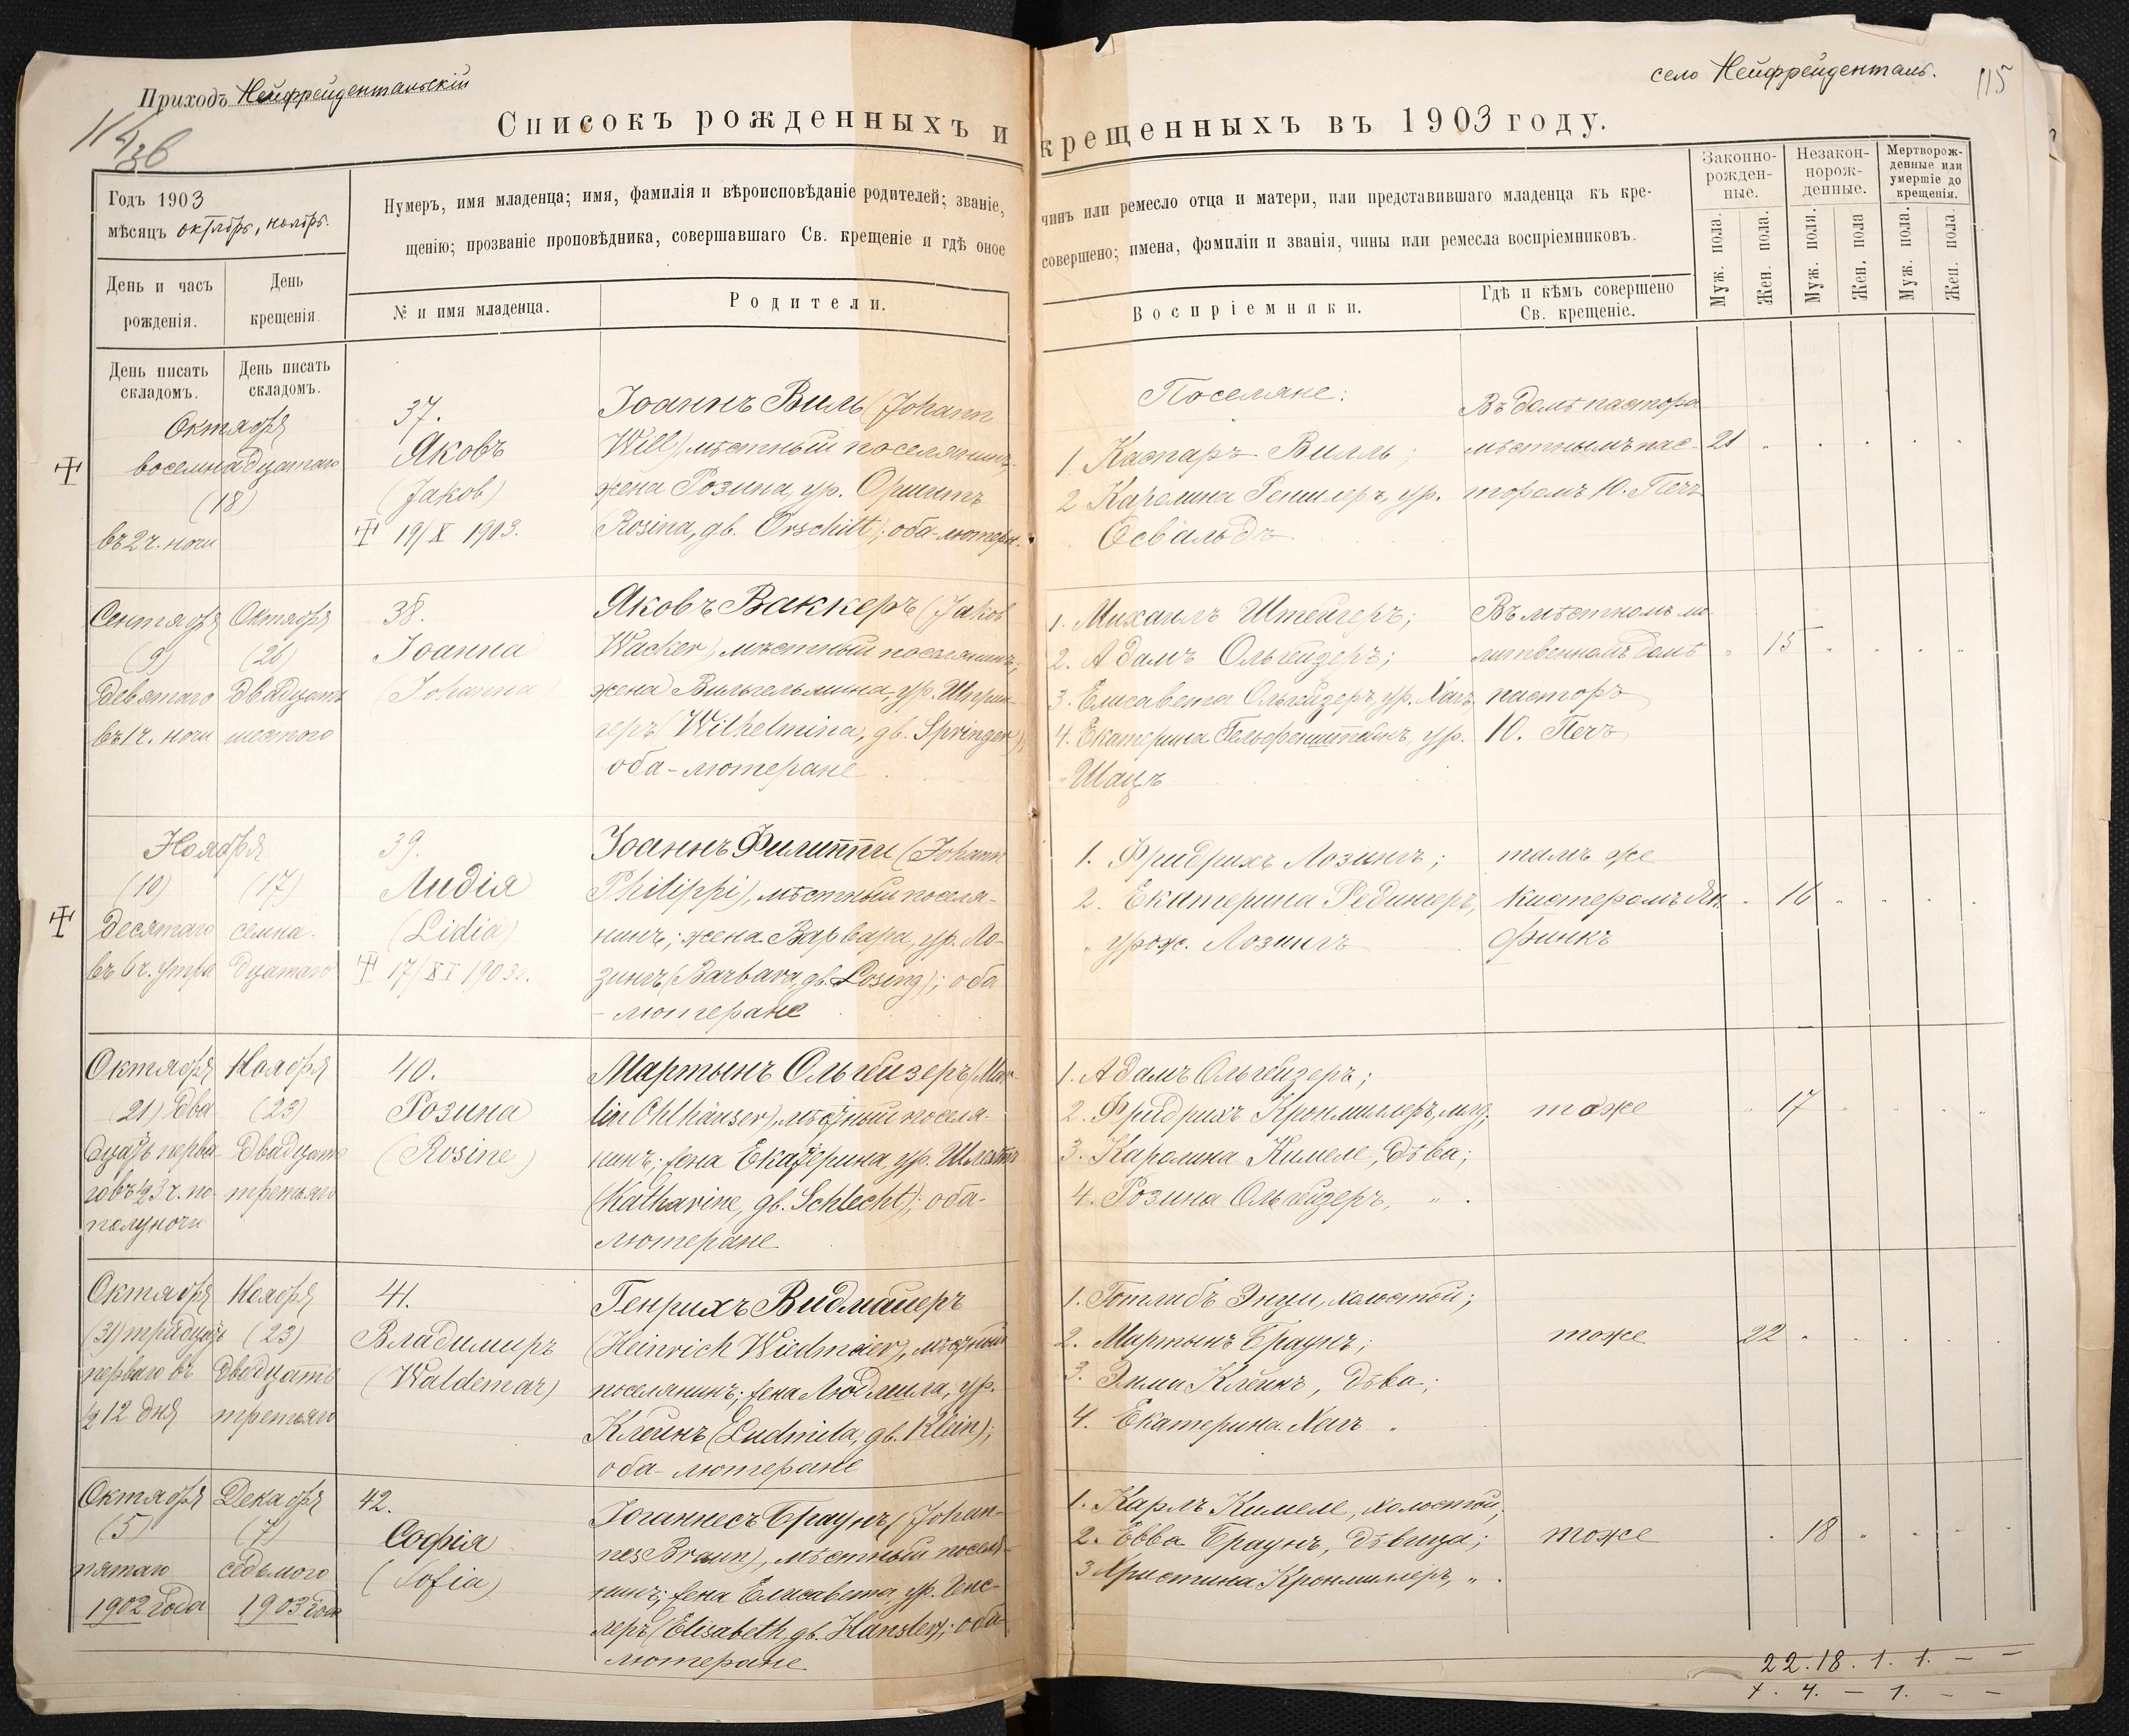 Приходъ Нейфрейдентальскій
село Нейфрейденталь.
115
Списокъ рожденныхъ и крещенныхъ въ 1903 году.
Годъ 1903
мѣсяцъ октябрь, ноябрь.
День и часъ рожденія.
День крещенія.
Нумеръ, имя младенца; имя, фамилія и вѣроисповѣданіе родителей; званіе, чинъ или ремесло отца и матери, или представившаго младенца къ кре-
щенію; прозваніе проповѣдника, совершавшаго Св. крещеніе и гдѣ оное совершено; имена, фамиліи и званія, чины или ремесла воспріемниковъ.
№ и имя младенца.
Родители.
Воспріемники.
Гдѣ и кѣмъ совершено
Св. крещеніе.
Законно-
рожден-
ные.
Незакон-
норож-
денные.
Мертворож-
денные или
умершіе до
крещенія.
Муж. пола.
Жен. пола.
Муж. пола.
Жен. пола
Муж. пола.
Жен. пола
День писать
складомъ.
День писать
складомъ.
Октября
восемнадцатаго
(18)
въ 2 ч. ночи
37.
Яковъ
(Jakob)
19/X 1903.
Іоаннъ Виль (Johann
Will) мѣстный поселянинъ,
жена Розина, ур. Оршитъ
(Rosina, gb. Orschitt); оба-лютеран.
Поселяне:
1. Каспаръ Вилль;
2 Каролина Решлеръ, ур.
Освальдъ
Въ домѣ пастора
мѣстнымъ пас-
торомъ Ю. Печъ
21
Сентября
(9)
девятаго
въ 1 ч. ночи
Октября
(26)
двадцать
шестого
38.
Іоанна
(Johanna)
Яковъ Ваккеръ (Jakob
Wacker) мѣстный поселянинъ;
жена Вильгельмина, ур. Шприн-
геръ (Wilhelmina, gb. Springer),
оба-лютеране
1. Михаилъ Штейгеръ;
2. Адамъ Ольгейзеръ;
3. Елисавета Ольгейзеръ, ур. Хагъ
4. Екатерина Гельфенштейнъ, ур.
Шацъ
Въ мѣстномъ мо-
литвенномъ домѣ
пасторъ
Ю. Печъ
15
Ноября
(10)
десятаго
въ 6 ч. утра
(17)
семна-
дцатаго
39.
Лидія
(Lidia)
17/XI 1903 г.
Іоаннъ Филиппи (Johann
Philippi), мѣстный поселя-
нинъ; жена Варвара, ур. Ло-
зингъ (Barbara, gb. Losing); оба
-лютеране
1. Фридрихъ Лозингъ;
2. Екатерина Редингеръ,
урож. Лозингъ
тамъ же
кистеромъ Як.
Финкъ
16
Октября
(21) два
дцать перва-
го въ ½ 3 ч. по-
полуночи
Ноября
(23)
двадцать
третьяго
40.
Розина
(Rosine)
Мартынъ Ольгейзеръ (Mar-
tin Ohlhäuser), мѣстный поселя-
нинъ; жена Екатерина, ур. Шлехтъ
(Katharine, gb. Schlecht); оба-
лютеране
1. Адамъ Ольгейзеръ;
2. Фридрихъ Кронмиллеръ, млд;
3. Каролина Кимеле, дѣва;
4. Розина Ольгейзеръ, "
тоже
17
Октября
(31) тридцать
перваго въ
½ 12 дня
Ноября
(23)
двадцать
третьяго
41.
Владимиръ
(Waldemar)
Генрихъ Видмайеръ
(Heinrich Wiedmaier), мѣстный
поселянинъ; жена Людмила, ур.
Клейнъ (Ludmila, gb. Klein);
оба-лютеране
1. Готлибъ Энци, холостой;
2. Мартынъ Браунъ;
3. Эмма Клейнъ, дѣва;
4. Екатерина Хагъ "
тоже
22
Октября
(5)
пятаго
1902 года
Декабря
(7)
седьмого
1903 года
42.
Софія
(Sofia)
Іоганнесъ Браунъ (Johan-
nes Braun), мѣстный поселя-
нинъ; жена Елисавета, ур. Генс-
леръ (Elisabeth, gb. Hänsler); оба
лютеране
1. Карлъ Кимеле, холостой;
2. Евва Браунъ, дѣвица;
3 Христина Кронмиллеръ, "
тоже
18
22. 18. 1. 1. – –
4. – 1. – –